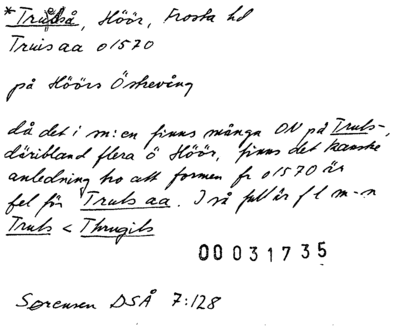 *Trulså, Höör, Frosta hd
Truis aa o1570
på Höörs Östrevång
då det i m:en finns många ON på Truls-,
däribland flera ö Höör, finns det kanske
anledning tro att formen fr o1570 är
fel för Truls aa. I så fall är f l m-n
Truls < Thrugils
00031735
Sørensen DSÅ 7:128